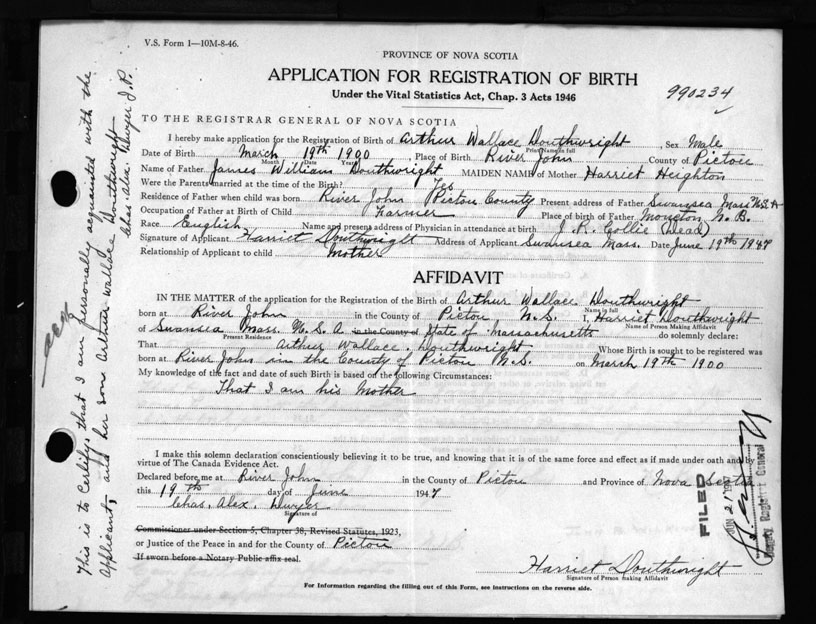 V.S. Form 1—10M-8-46.
PROVINCE OF NOVA SCOTIA
APPLICATION FOR REGISTRATION OF BIRTH
Under the Vital Statistics Act, Chap. 3 Acts 1946
990234
TO THE REGISTRAR GENERAL OF NOVA SCOTIA
I hereby make application for the Registration of Birth of Arthur Wallace Douthwright, Sex Male
Print Name in full
Date of Birth March 19th 1900, Place of Birth River John County of Pictou
Month Date Year
Name of Father James William Douthwright MAIDEN NAME of Mother Harriet Heighton
Were the Parents married at the time of the Birth? Yes
Residence of Father when child was born River John Pictou County Present address of Father Swansea Mass
Occupation of Father at Birth of Child Farmer Place of birth of Father N. B.
Race English Name and present address of Physician in attendance at birth J. R. Collie (Dead)
Signature of Applicant Harriet Douthwright Address of Applicant Swansea Mass. Date June 19th 1947
Relationship of Applicant to child Mother
AFFIDAVIT
IN THE MATTER of the application for the Registration of the Birth of Arthur Wallace Douthwright
Name in full
born at River John in the County of Pictou N.S. I, Harriet Douthwright
Name of Person Making Affidavit
of Swansea Mass. U.S.A. in the County of State of Massachusetts do solemnly declare:
Present Residence
That Arthur Wallace Douthwright Whose Birth is sought to be registered was
born at River John in the County of Pictou N.S. on March 19th 1900
My knowledge of the fact and date of such Birth is based on the following Circumstances:
That I am his Mother
I make this solemn declaration conscientiously believing it to be true, and knowing that it is of the same force and effect as if made under oath and by
virtue of The Canada Evidence Act.
Declared before me at River John in the County of Pictou and Province of Nova Scotia
this 19th day of June 1947
Chas. Alex. Dwyer
Signature of
Commissioner under Section 5, Chapter 38, Revised Statutes, 1923,
or Justice of the Peace in and for the County of Pictou
If sworn before a Notary Public affix seal.
Harriet Douthwright
Signature of Person making Affidavit
For Information regarding the filling out of this Form, see instructions on the reverse side.
This is to Certify, that I am personally acquainted with the
Applicant, and her son Arthur Wallace Douthwright
Chas. Alex. Dwyer J.P.
FILED
Deputy Registrar General